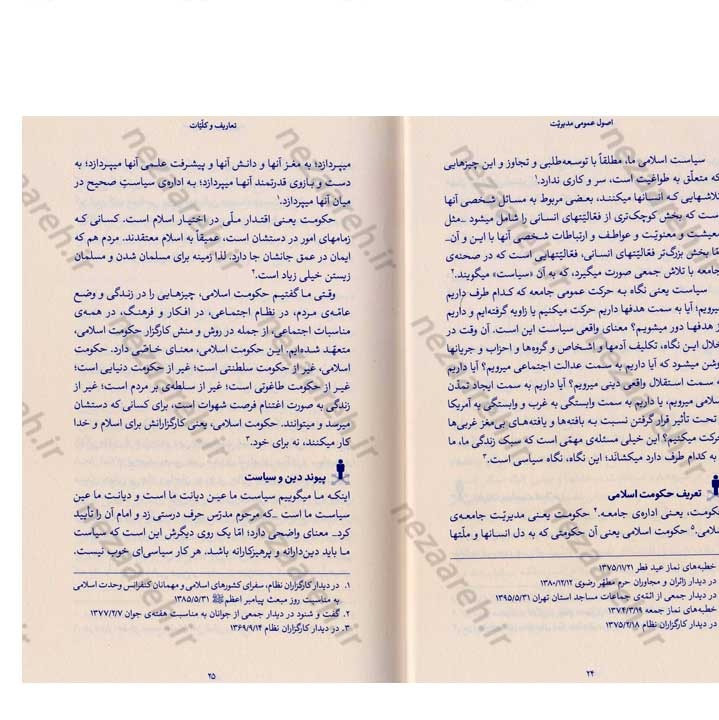 اصول عمومی مدیریّت
سیاست اسلامی ما، مطلقاً با توسعه‌طلبی و تجاوز و این چیزهایی
که متعلّق به طواغیت است، سر و کاری ندارد.¹
تلاشهایی که انسانها میکنند، بعضی مربوط به مسائل شخصی آنها
است که بخش کوچک‌تری از فعّالیّتهای انسانی را شامل میشود ـ مثل
معیشت و معنویّت و عواطف و ارتباطات شخصی آنها با این و آن ـ
امّا بخش بزرگ‌تر فعّالیّتهای انسانی، فعّالیّتهایی است که در صحنه‌ی
جامعه با تلاش جمعی صورت میگیرد، که به آن «سیاست» میگویند.²
سیاست یعنی نگاه به حرکت عمومی جامعه که کدام طرف داریم
میرویم؛ آیا به سمت هدفها داریم حرکت میکنیم یا زاویه گرفته‌ایم و داریم
از هدفها دور میشویم؟ معنای واقعی سیاست این است. آن وقت در
خلال این نگاه، تکلیف آدمها و اشخاص و گروه‌ها و احزاب و جریانها
روشن میشود که آیا داریم به سمت عدالت اجتماعی میرویم؟ آیا داریم
به سمت استقلال واقعی دینی میرویم؟ آیا داریم به سمت ایجاد تمدّن
اسلامی میرویم، یا داریم به سمت وابستگی به غرب و وابستگی به آمریکا
و تحت تأثیر قرار گرفتن نسبت به بافته‌ها و یافته‌های بی‌مغز غربی‌ها
حرکت میکنیم؟ این خیلی مسئله‌ی مهمّی است که سبک زندگی ما، ما
را به کدام طرف دارد میکشاند؛ این نگاه، نگاه سیاسی است.³
تعریف حکومت اسلامی
حکومت، یعنی اداره‌ی جامعه.⁴ حکومت یعنی مدیریّت جامعه‌ی
اسلامی.⁵ حکومت اسلامی یعنی آن حکومتی که به دل انسانها و ملّتها
خطبه‌های نماز عید فطر ۱۳۷۵/۱۱/۲۱
در دیدار زائران و مجاوران حرم مطهّر رضوی ۱۳۸۰/۱۲/۱۲
در دیدار جمعی از ائمّه‌ی جماعات مساجد استان تهران ۱۳۹۵/۵/۳۱
خطبه‌های نماز جمعه ۱۳۷۴/۳/۱۹
در دیدار کارگزاران نظام ۱۳۷۵/۲/۱۸
۲۴
تعاریف و کلّیّات
میپردازد؛ به مغز آنها و دانش آنها و پیشرفت علمی آنها میپردازد؛ به
دست و بازوی قدرتمند آنها میپردازد؛ به اداره‌ی سیاستِ صحیح در
میان آنها میپردازد.¹
حکومت یعنی اقتدار ملّی در اختیار اسلام است. کسانی که
زمامهای امور در دستشان است، عمیقاً به اسلام معتقدند. مردم هم که
ایمان در عمق جانشان جا دارد. لذا زمینه برای مسلمان شدن و مسلمان
زیستن خیلی زیاد است.²
وقتی ما گفتیم حکومت اسلامی، چیزهایی را در زندگی و وضع
عامّه‌ی مردم، در نظام اجتماعی، در افکار و فرهنگ، در همه‌ی
مناسبات اجتماعی، از جمله در روش و منش کارگزار حکومت اسلامی،
متعهّد شده‌ایم. این حکومت اسلامی، معنای خاصّی دارد. حکومت
اسلامی، غیر از حکومت سلطنتی است؛ غیر از حکومت دنیایی است؛
غیر از حکومت طاغوتی است؛ غیر از سلطه‌ی بر مردم است؛ غیر از
زندگی به صورت اغتنام فرصت شهوات است، برای کسانی که دستشان
میرسد و میتوانند. حکومت اسلامی، یعنی کارگزارانش برای اسلام و خدا
کار میکنند، نه برای خود.³
پیوند دین و سیاست
اینکه ما میگوییم سیاست ما عین دیانت ما است و دیانت ما عین
سیاست ما است ـ که مرحوم مدرّس حرف درستی زد و امام آن را تأیید
کرد ـ معنای واضحی دارد؛ امّا یک روی دیگرش این است که سیاست
ما باید دین‌دارانه و پرهیزکارانه باشد. هر کار سیاسی‌ای خوب نیست.
۱. در دیدار کارگزاران نظام، سفرای کشورهای اسلامی و مهمانان کنفرانس وحدت اسلامی
به مناسبت روز مبعث پیامبر اعظم ﷺ ۱۳۸۵/۵/۳۱
۲. گفت و شنود در دیدار جمعی از جوانان به مناسبت هفته‌ی جوان ۱۳۷۷/۲/۷
۳. در دیدار کارگزاران نظام ۱۳۶۹/۹/۱۴
۲۵
nezaareh.ir